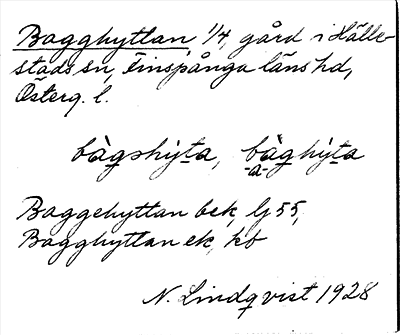 Bagghyttan, 1/4, gård i Hälle-
stads sn, Finspånga läns hd,
Österg. l.
bàgshy̆ta, bàghy̆ta
-a-
Baggehyttan bek, lj 55,
Bagghyttan ek, kb
N. Lindqvist 1928